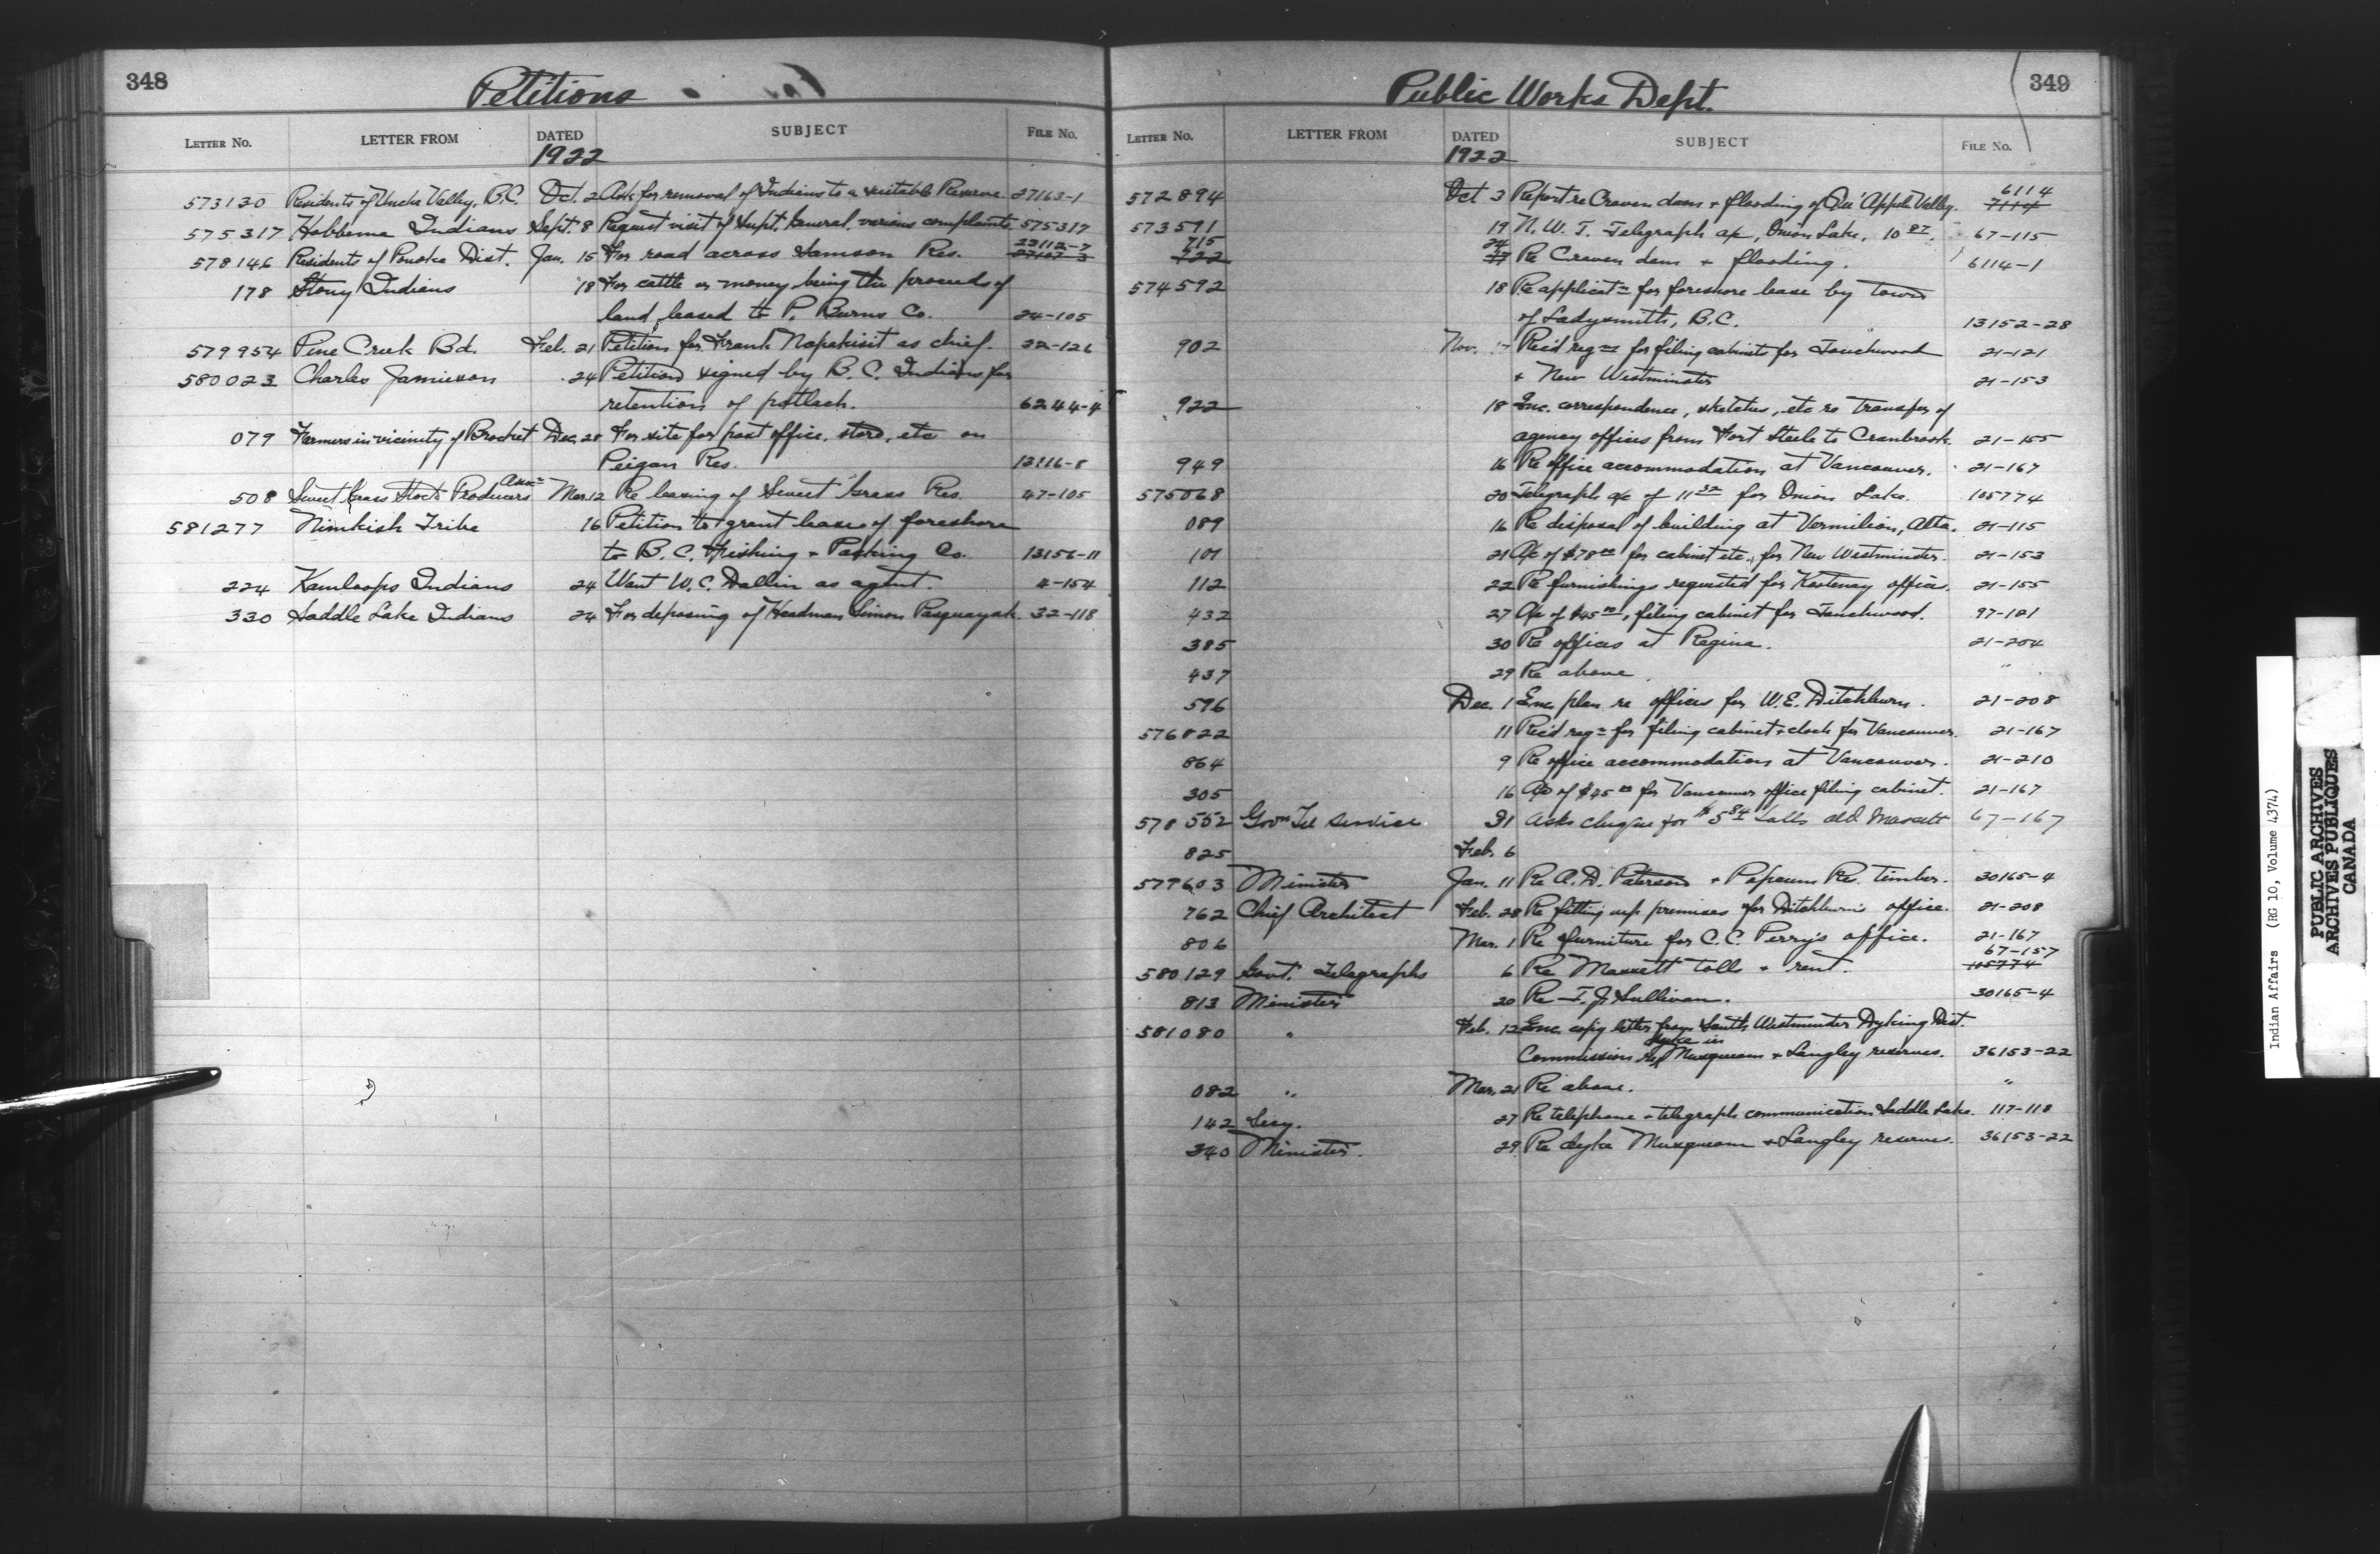 348
Petitions
LETTER NO. LETTER FROM DATED SUBJECT FILE NO.
1922
573130 Residents of Uncha Valley, B.C. Oct. 2 Ask for removal of Indians to a suitable Reserve 27163-1
575317 Hobbema Indians Sept. 8 Request visit of Supt. General, various complaints 575317
23112-7
578146 Residents of Ponoka Dist. Jan. 15 For road across Samson Res. 27107-3
178 Stony Indians 18 For cattle or money being the proceeds of
land leased to P. Burns Co. 24-105
579954 Pine Creek Bd. Feb. 21 Petition for Frank Napakisit as chief. 22-126
580023 Charles Jamieson 24 Petition signed by B.C. Indians for
retention of potlach. 6244-4
079 Farmers in vicinity of Brocket Dec. 28 For site for post office, store, etc on
Peigan Res. 13116-8
508 Sweet Grass Stock Producers Assn Mar. 12 Re leasing of Sweet Grass Res. 47-105
581277 Nimkish Tribe 16 Petition to grant lease of foreshore
to B.C. Fishing + Packing Co. 13156-11
224 Kamloops Indians 24 Want W.C. Dallin as agent. 4-154
330 Saddle Lake Indians 24 For deposing of Headman Simon Pasquayak. 32-118
349
Public Works Dept.
LETTER NO. LETTER FROM DATED SUBJECT FILE NO.
1922
6114
572894 Oct 3 Report re Craven dam + flooding of Qu'Apple Valley. 7114
573591 19 N.W.T. Telegraph a/c, Onion Lake, 10 87. 67-115
715 24
722 Re Craven dam + flooding. 6114-1
574592 18 Re applicatn for foreshore lease by town
of Ladysmith, B.C. 13152-28
902 Nov. 17 Rec'd reqn for filing cabinets for Touchwood 21-121
+ New Westminster 21-153
922 18 Enc. correspondence, sketches, etc re transfer of
agency offices from Fort Steele to Cranbrook. 21-155
949 16 Re office accommodation at Vancouver. 21-167
575068 20 Telegraph a/c of 11 32 for Onion Lake. 105774
089 16 Re disposal of building at Vermilion, Alta. 21-115
101 21 A/c of $78 00 for cabinet etc., for New Westminster. 21-153
112 22 Re furnishings requested for Kootenay office. 21-155
432 27 A/c of $45 00, filing cabinet for Touchwood. 97-121
385 30 Re offices at Regina. 21-204
437 29 Re above. "
596 Dec. 1 Enc. plan re offices for W.E. Ditchburn. 21-208
576822 11 Rec'd reqn for filing cabinet + clock for Vancouver. 21-167
864 9 Re office accommodation at Vancouver. 21-210
305 16 A/c of $45 00 for Vancouver office filing cabinet. 21-167
578552 Govn Tel Service 31 Asks cheque for $5 84 tolls old Massett 67-167
825 Feb. 6
579603 Minister Jan. 11 Re A.D. Paterson + Papeum Res. timber. 30165-4
762 Chief Architect Feb. 28 Re fitting up premises for Ditchburn's office. 21-208
806 Mar. 1 Re furniture for C.C. Perry's office. 21-167
67-157
580129 Govt. Telegraphs 6 Re Massett tolls + rent. 105774
813 Minister 20 Re T.J. Sullivan. 30165-4
581080 " Feb. 12 Enc. copy letter from South Westminster Dyking Dist.
dyke in
Commission re Musqueam + Langley reserves. 36153-22
082 " Mar. 21 Re above. "
142 Secy. 27 Re telephone + telegraph communication Saddle Lake. 117-118
340 Minister. 29 Re dyke Musqueam + Langley reserves. 36153-22
Indian Affairs (RG 10, Volume 4374)
PUBLIC ARCHIVES
ARCHIVES PUBLIQUES
CANADA